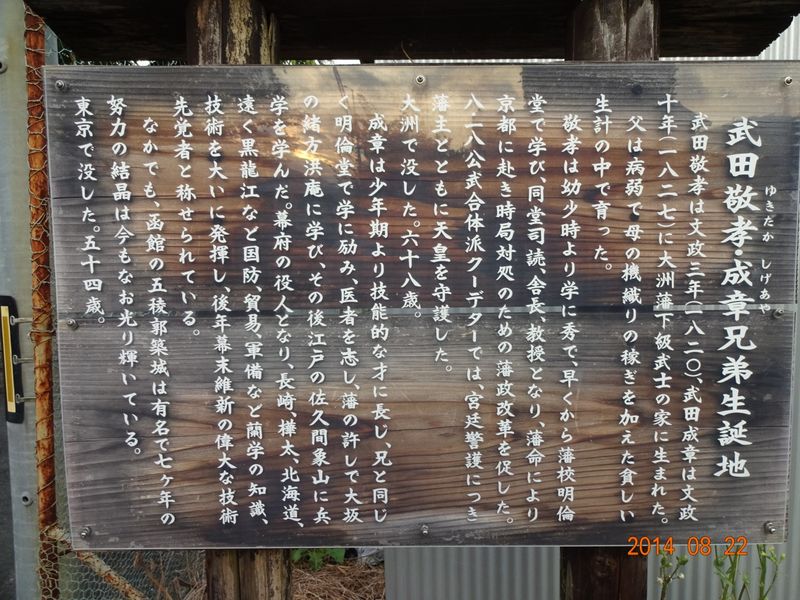 武田敬孝・成章兄弟生誕地
ゆきたか しげあや
武田敬孝は文政三年(一八二〇)、武田成章は文政
十年(一八二七)に大洲藩下級武士の家に生まれた。
父は病弱で母の機織りの稼ぎを加えた貧しい
生計の中で育った。
敬孝は幼少時より学に秀で、早くから藩校明倫
堂で学び、同堂司読、舎長、教授となり、藩命により
京都に赴き時局対処のための藩政改革を促した。
八一八公武合体派クーデターでは、宮廷警護につき
藩主とともに天皇を守護した。
大洲で没した。六十八歳。
成章は少年期より技能的な才に長じ、兄と同じ
く明倫堂で学に励み、医者を志し、藩の許しで大坂
の緒方洪庵に学び、その後江戸の佐久間象山に兵
学を学んだ。幕府の役人となり、長崎、樺太、北海道、
遠く黒龍江など国防、貿易、軍備など蘭学の知識、
技術を大いに発揮し、後年幕末維新の偉大な技術
先覚者と称せられている。
なかでも、函館の五稜郭築城は有名で七ヶ年の
努力の結晶は今もなお光り輝いている。
東京で没した。五十四歳。
2014 08 22